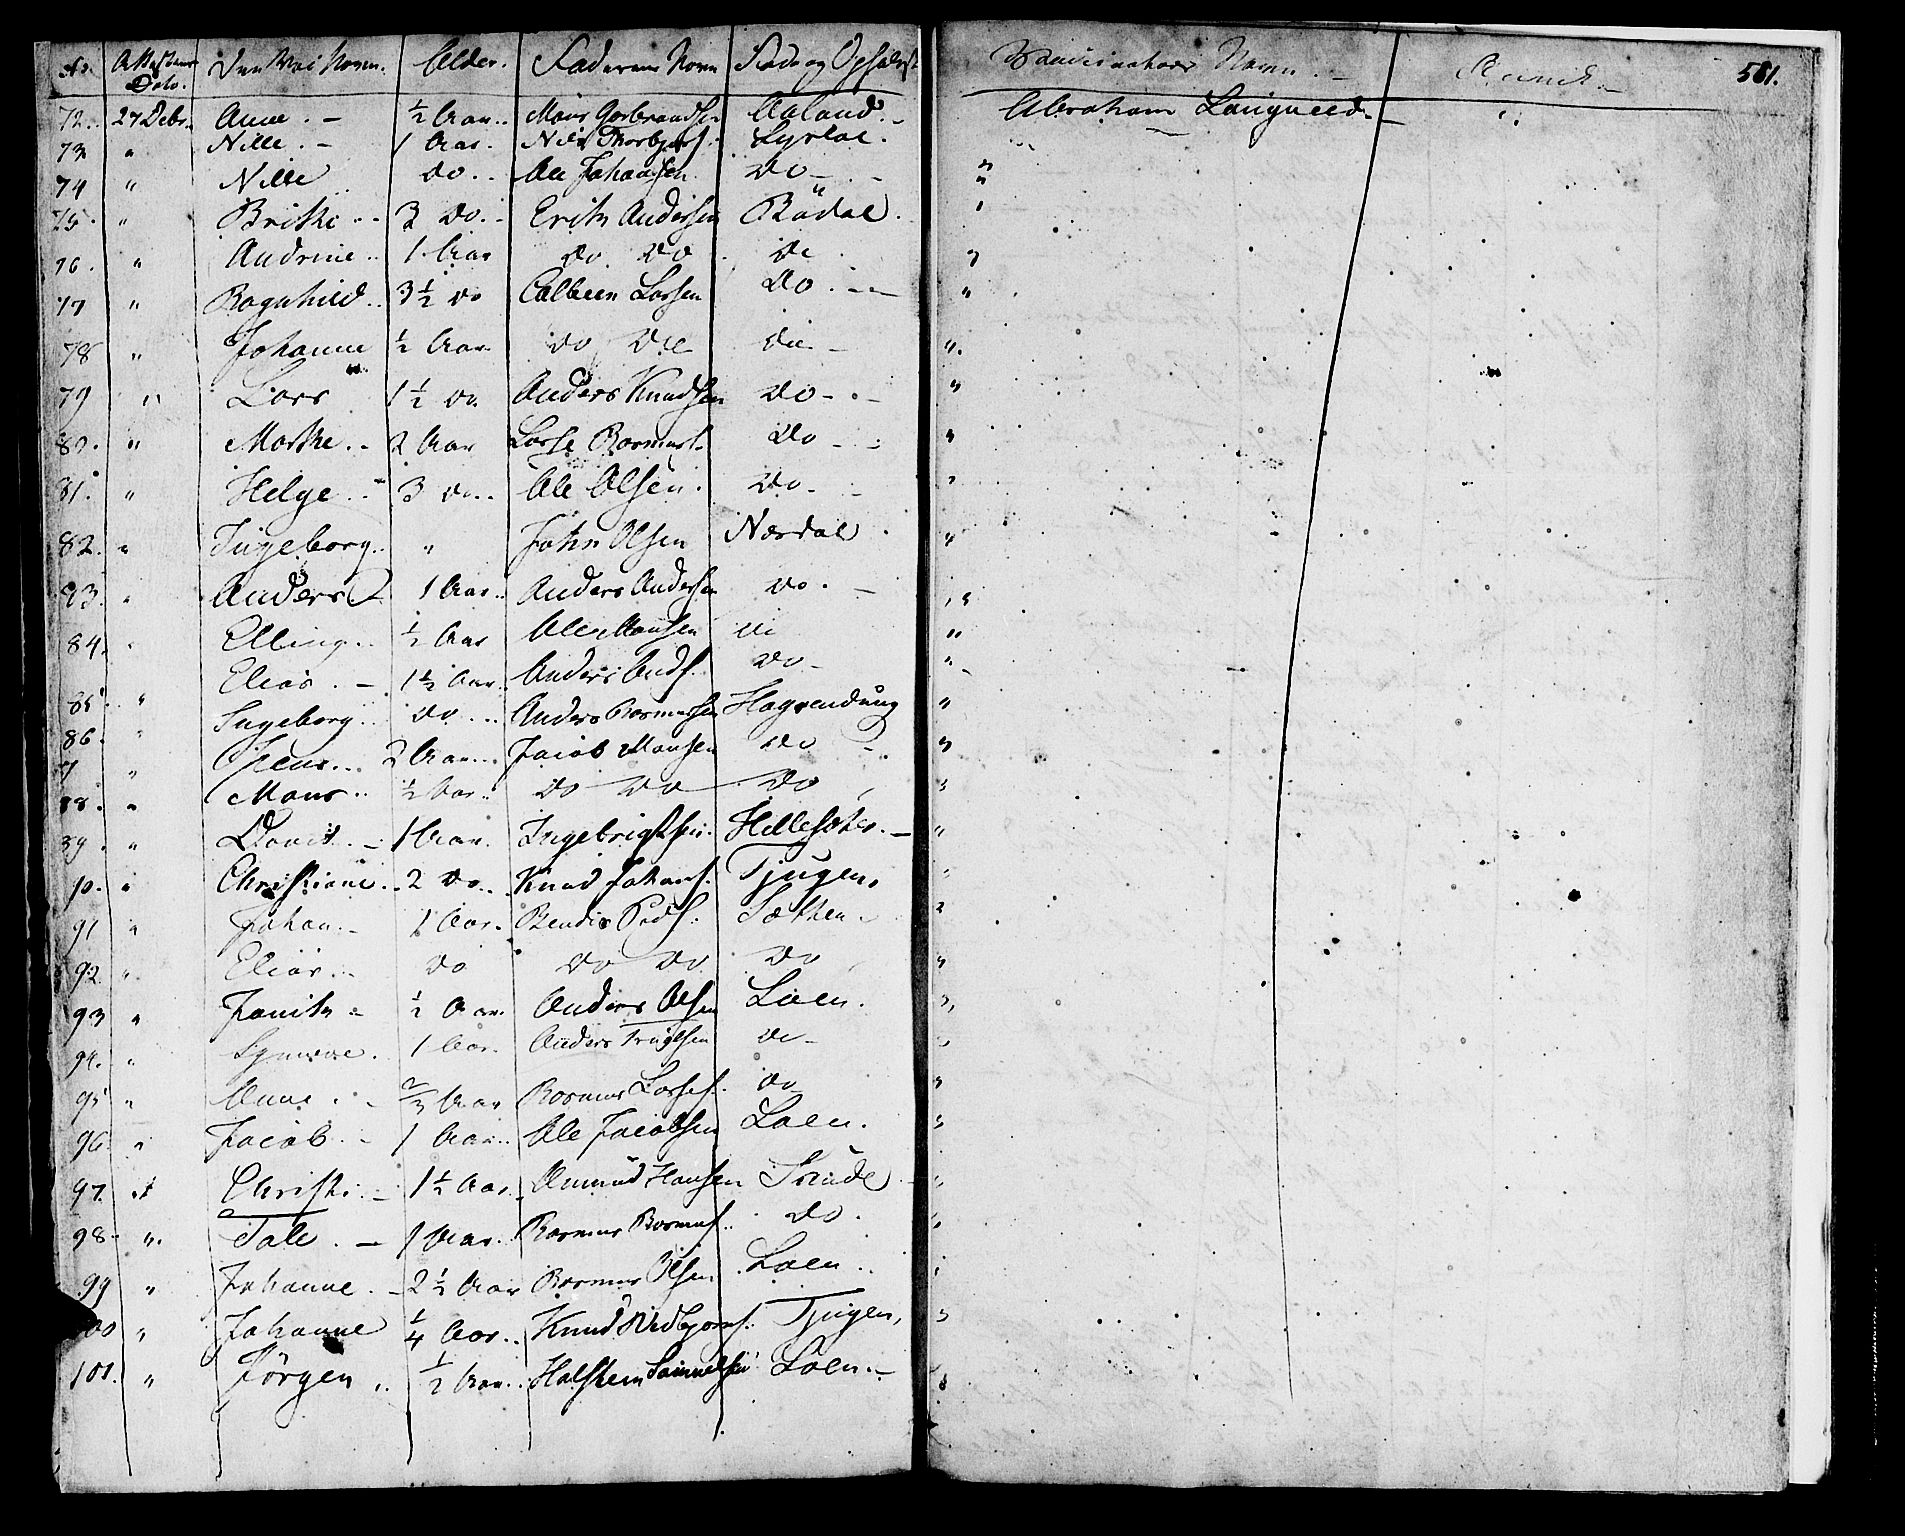 No. Attestens Dato. Den Vac: Navn. Alder. Faderens Navn Føde og Opholdst Vaccinateurs Navn. - 581.
72. 27 Debr. Anne. - ½ Aar. Mons Gorbrandsen Aaland. - Abraham Langneed. -
73 " Nille. - 1 Aar. Nils Thorbjørs: Lyslae.
74 " Nille do. Ole Johansen do - "
75. " Brithe.. 3 do. - Erik Andersen Bödal.
76. " Andrine.. 1 Aar do. do do "
77 " Ragnhild.. 3½ do Colbeen Larsen do. - "
78 " Johanne ½ Aar do do do - "
79 " Lars 1½ do. Anders Knudsen do - "
80. " Marthe. - 2 Aar Lasse Rasmuss. do - "
81. " Helge. - 3 do.. Ole Olsen. do - "
82. " Ingeborg.. " John Olsen Nesdal. "
83. " Anders 1 Aar.. Anders Andersen do. - "
84. " Elling.. ½ Aar Ole Hansen do "
Elias. - 1½ Aar. Anders Ands. do - "
85. " Ingeborg.. do... Anders Rasmussen Hogrendung "
86. " Jens... 2 Aar... Jacob Monsen do - "
7 " Mons.. ½ Aar.. do do do "
88. "
89. " Davit. - 1 Aar. Ingebrigtsen. Hellesæter. - "
90. " Christiane.. 2 do.. Knud Johans. Tjugen.
91 " Johan. - 1 Aar. Bendix Peds: Sæthen. "
92. " Elias.. do do do do "
93 " Jonith - ½ Aar. Anders Olsen Loen. "
94. " Synneve. 1 Aar. Anders Trugelsen do -
95 " Anne.. ⅔ Aar Rasmus Lasses. do "
96. " Jacob. - 1 Aar.. Ole Jacobsen Loen. "
97. " Christi. - 1½ Aar. Amund Hansen Sande. - "
98. " Tale. - 1 Aar. Rasmus Rasmus.. do. "
99 " Johanne. - 2½ Aar Rasmus Olsen. Loen.. "
100 " Johanne ¼ Aar.. Knud Widbjorns. Tjugen, "
101. " Jörgen.. ½ Aar.. Halsten Samuelsen Loen. - "